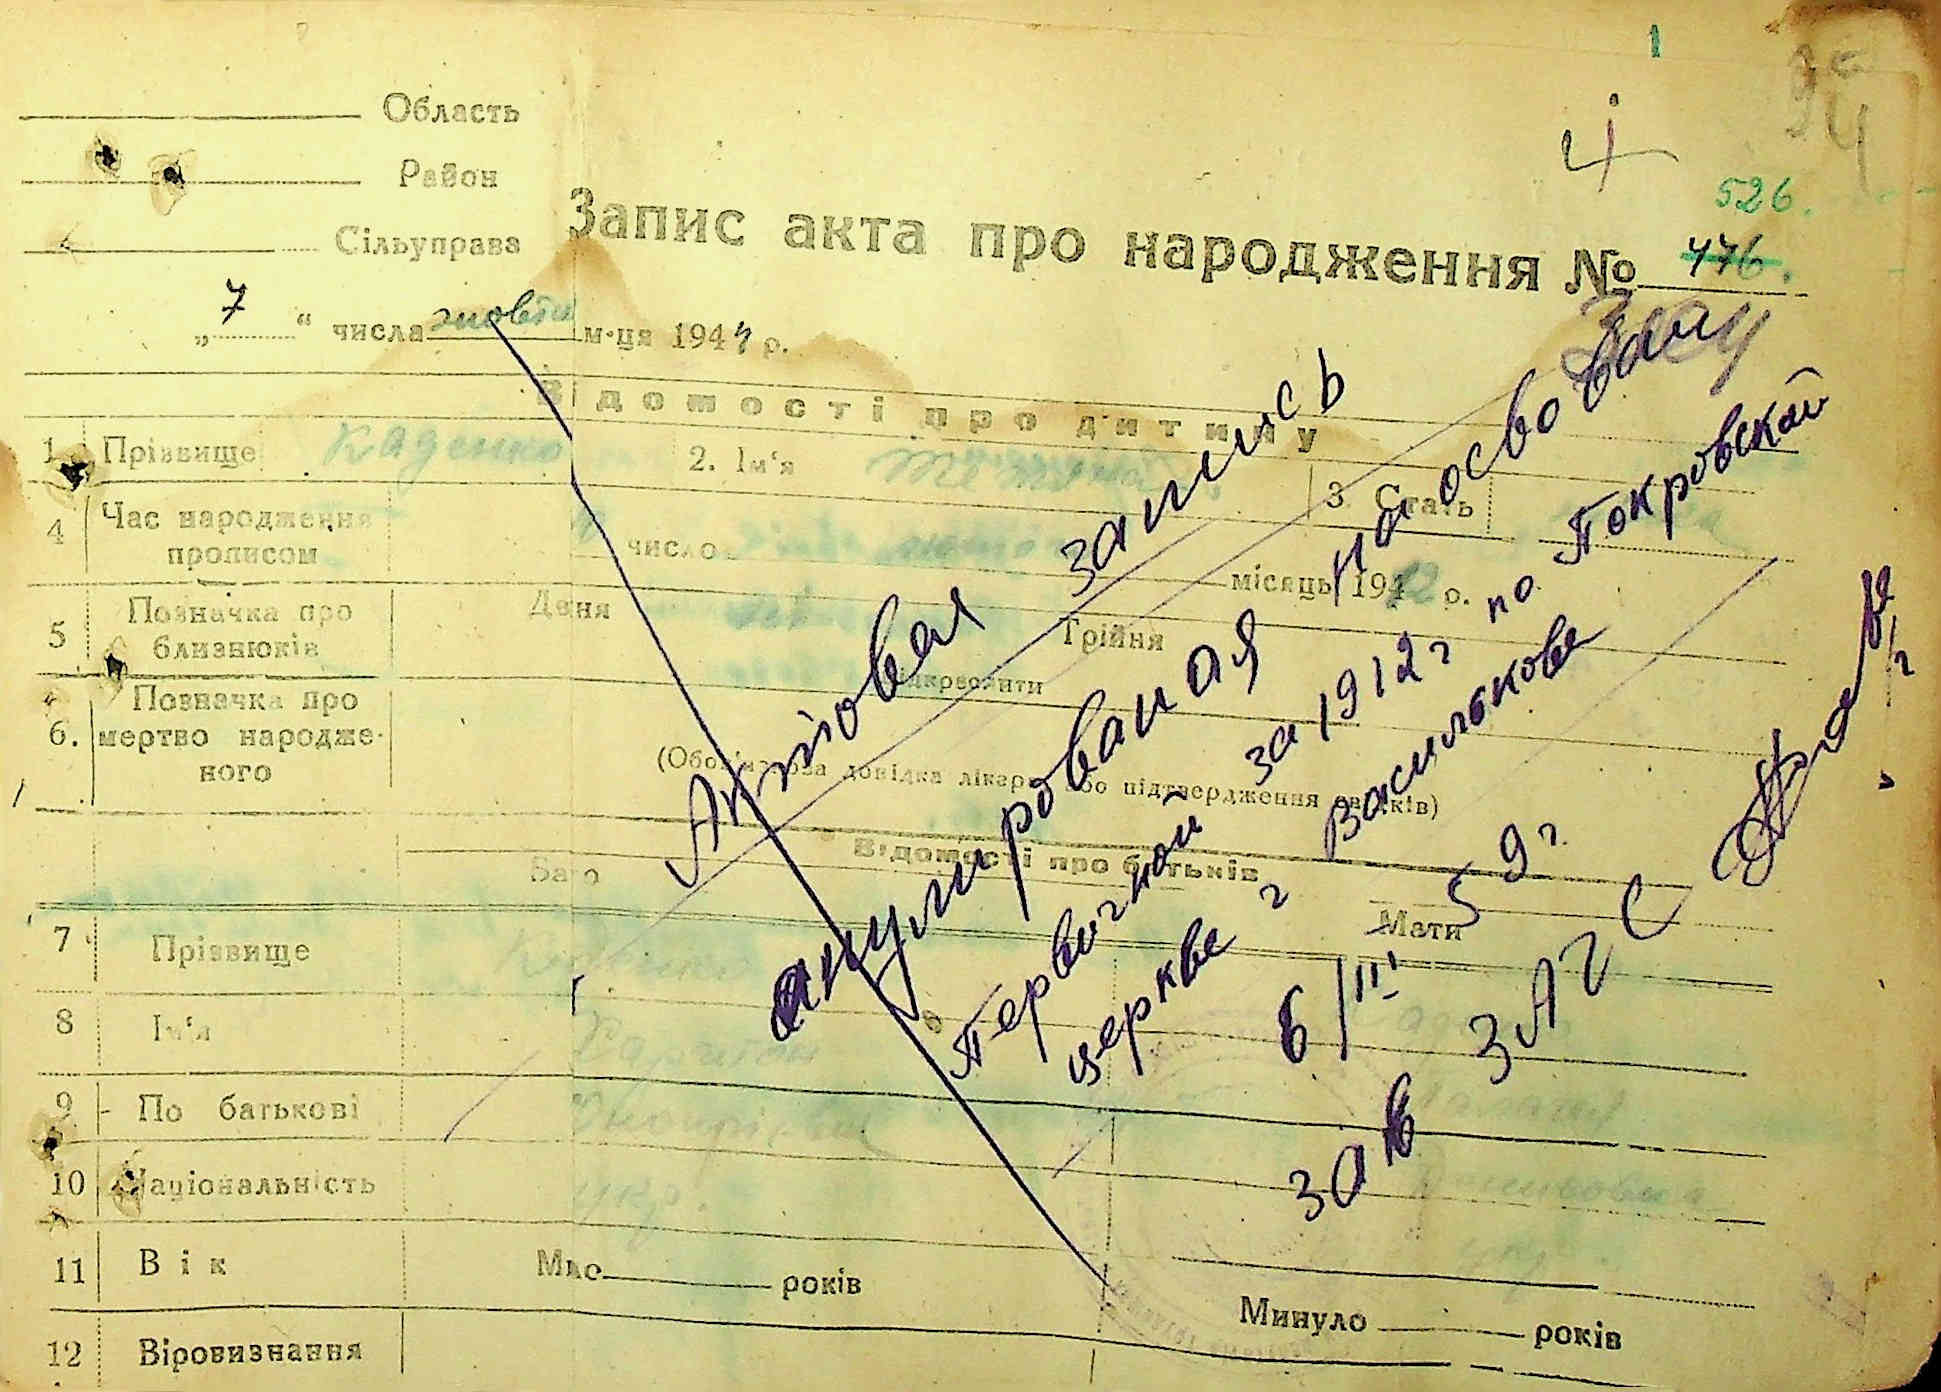 Область
Район
Сільуправа
4
526.
Запис акта про народження № 776.
„ 7 “ числа жовтн м-ця 1944 р.
Відомості про дитину
1 Прізвище Каденко 2. Ім'я Тетяна 3 Стать
4 Час народження прописом число місяць 1912 р.
5 Позначка про близнюків Двійня Трійня
підкреслити
6. Позначка про мертво народженого
(Обов'язкова довідка лікаря або підтвердження свідків)
Відомості про батьків
Батько Мати
7 Прізвище
8 Ім'я Харитон
9 По батькові
10 Національність укр. укр.
11 Вік Має років Минуло років
12 Віровизнання
Актовая запись
анулированая на основании
Первичной за 1912 г по Покровской
церкве г Василькове
6/III 59 г.
Зав ЗАГС